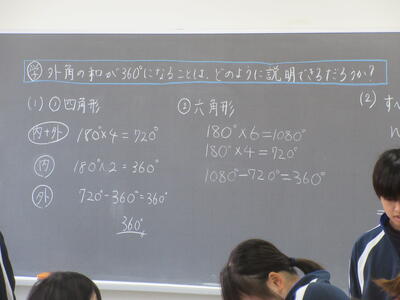 学 外角の和が360°になることは、どのように説明できるだろうか?
(1) ① 四角形
内+外 180°×4=720°
内 180°×2=360°
外 720°-360°=360°
360°
② 六角形
180°×6=1080°
180°×4=720°
1080°-720°=360°
(2) すべ
n